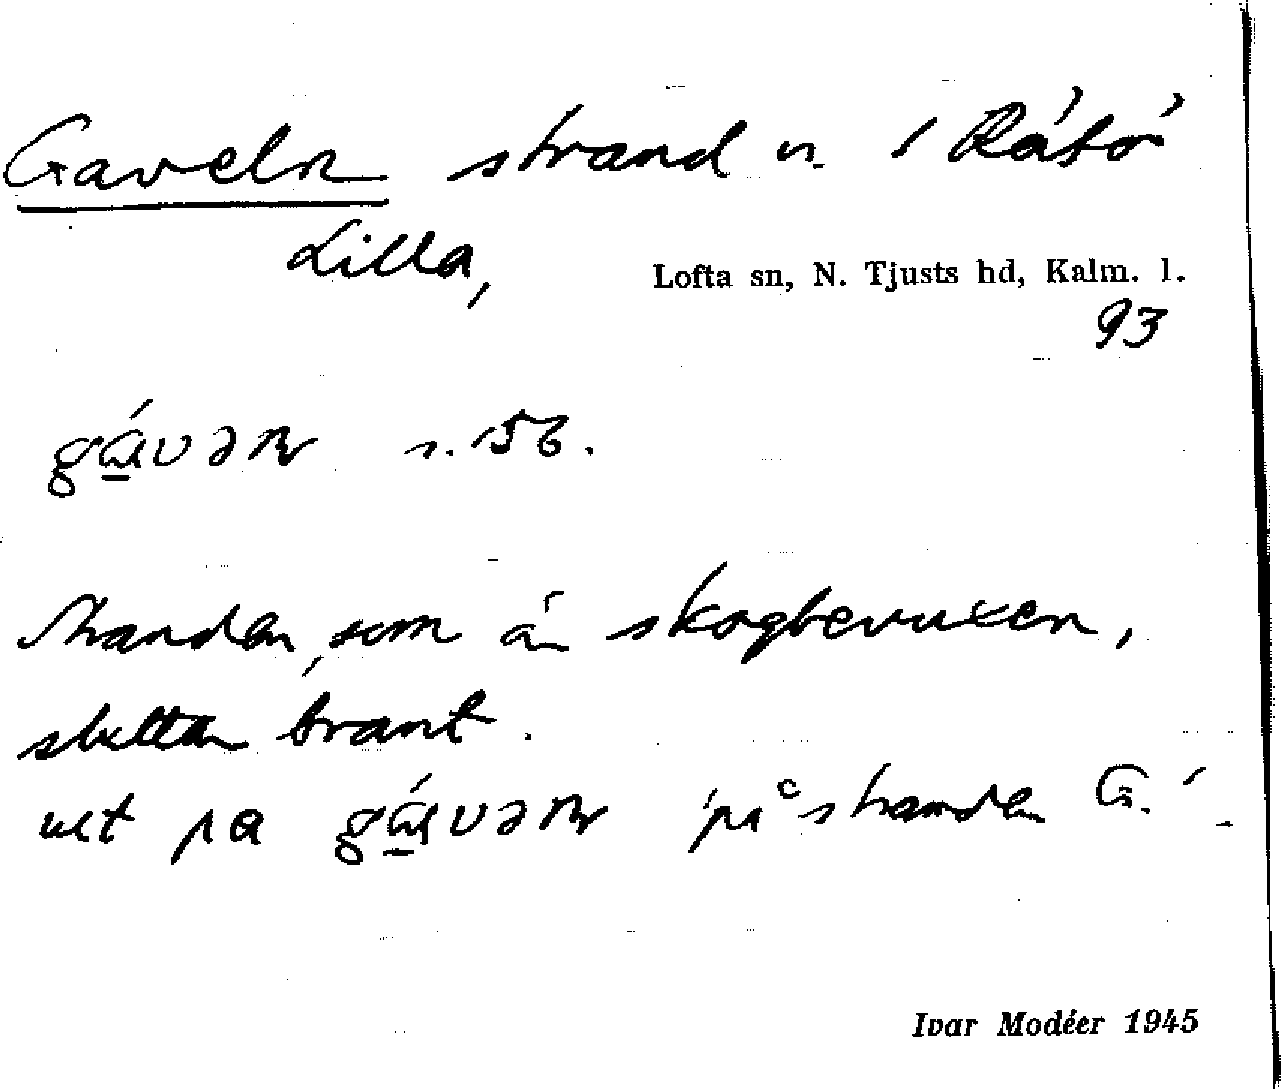 Gaveln strand n. / Råsö
Lilla,
Lofta sn, N. Tjusts hd, Kalm. l.
93
s. 156.
Stranden, som är skogbevuxen,
sluttar brant.
ut pa 'på stranden G.'
Ivar Modéer 1945